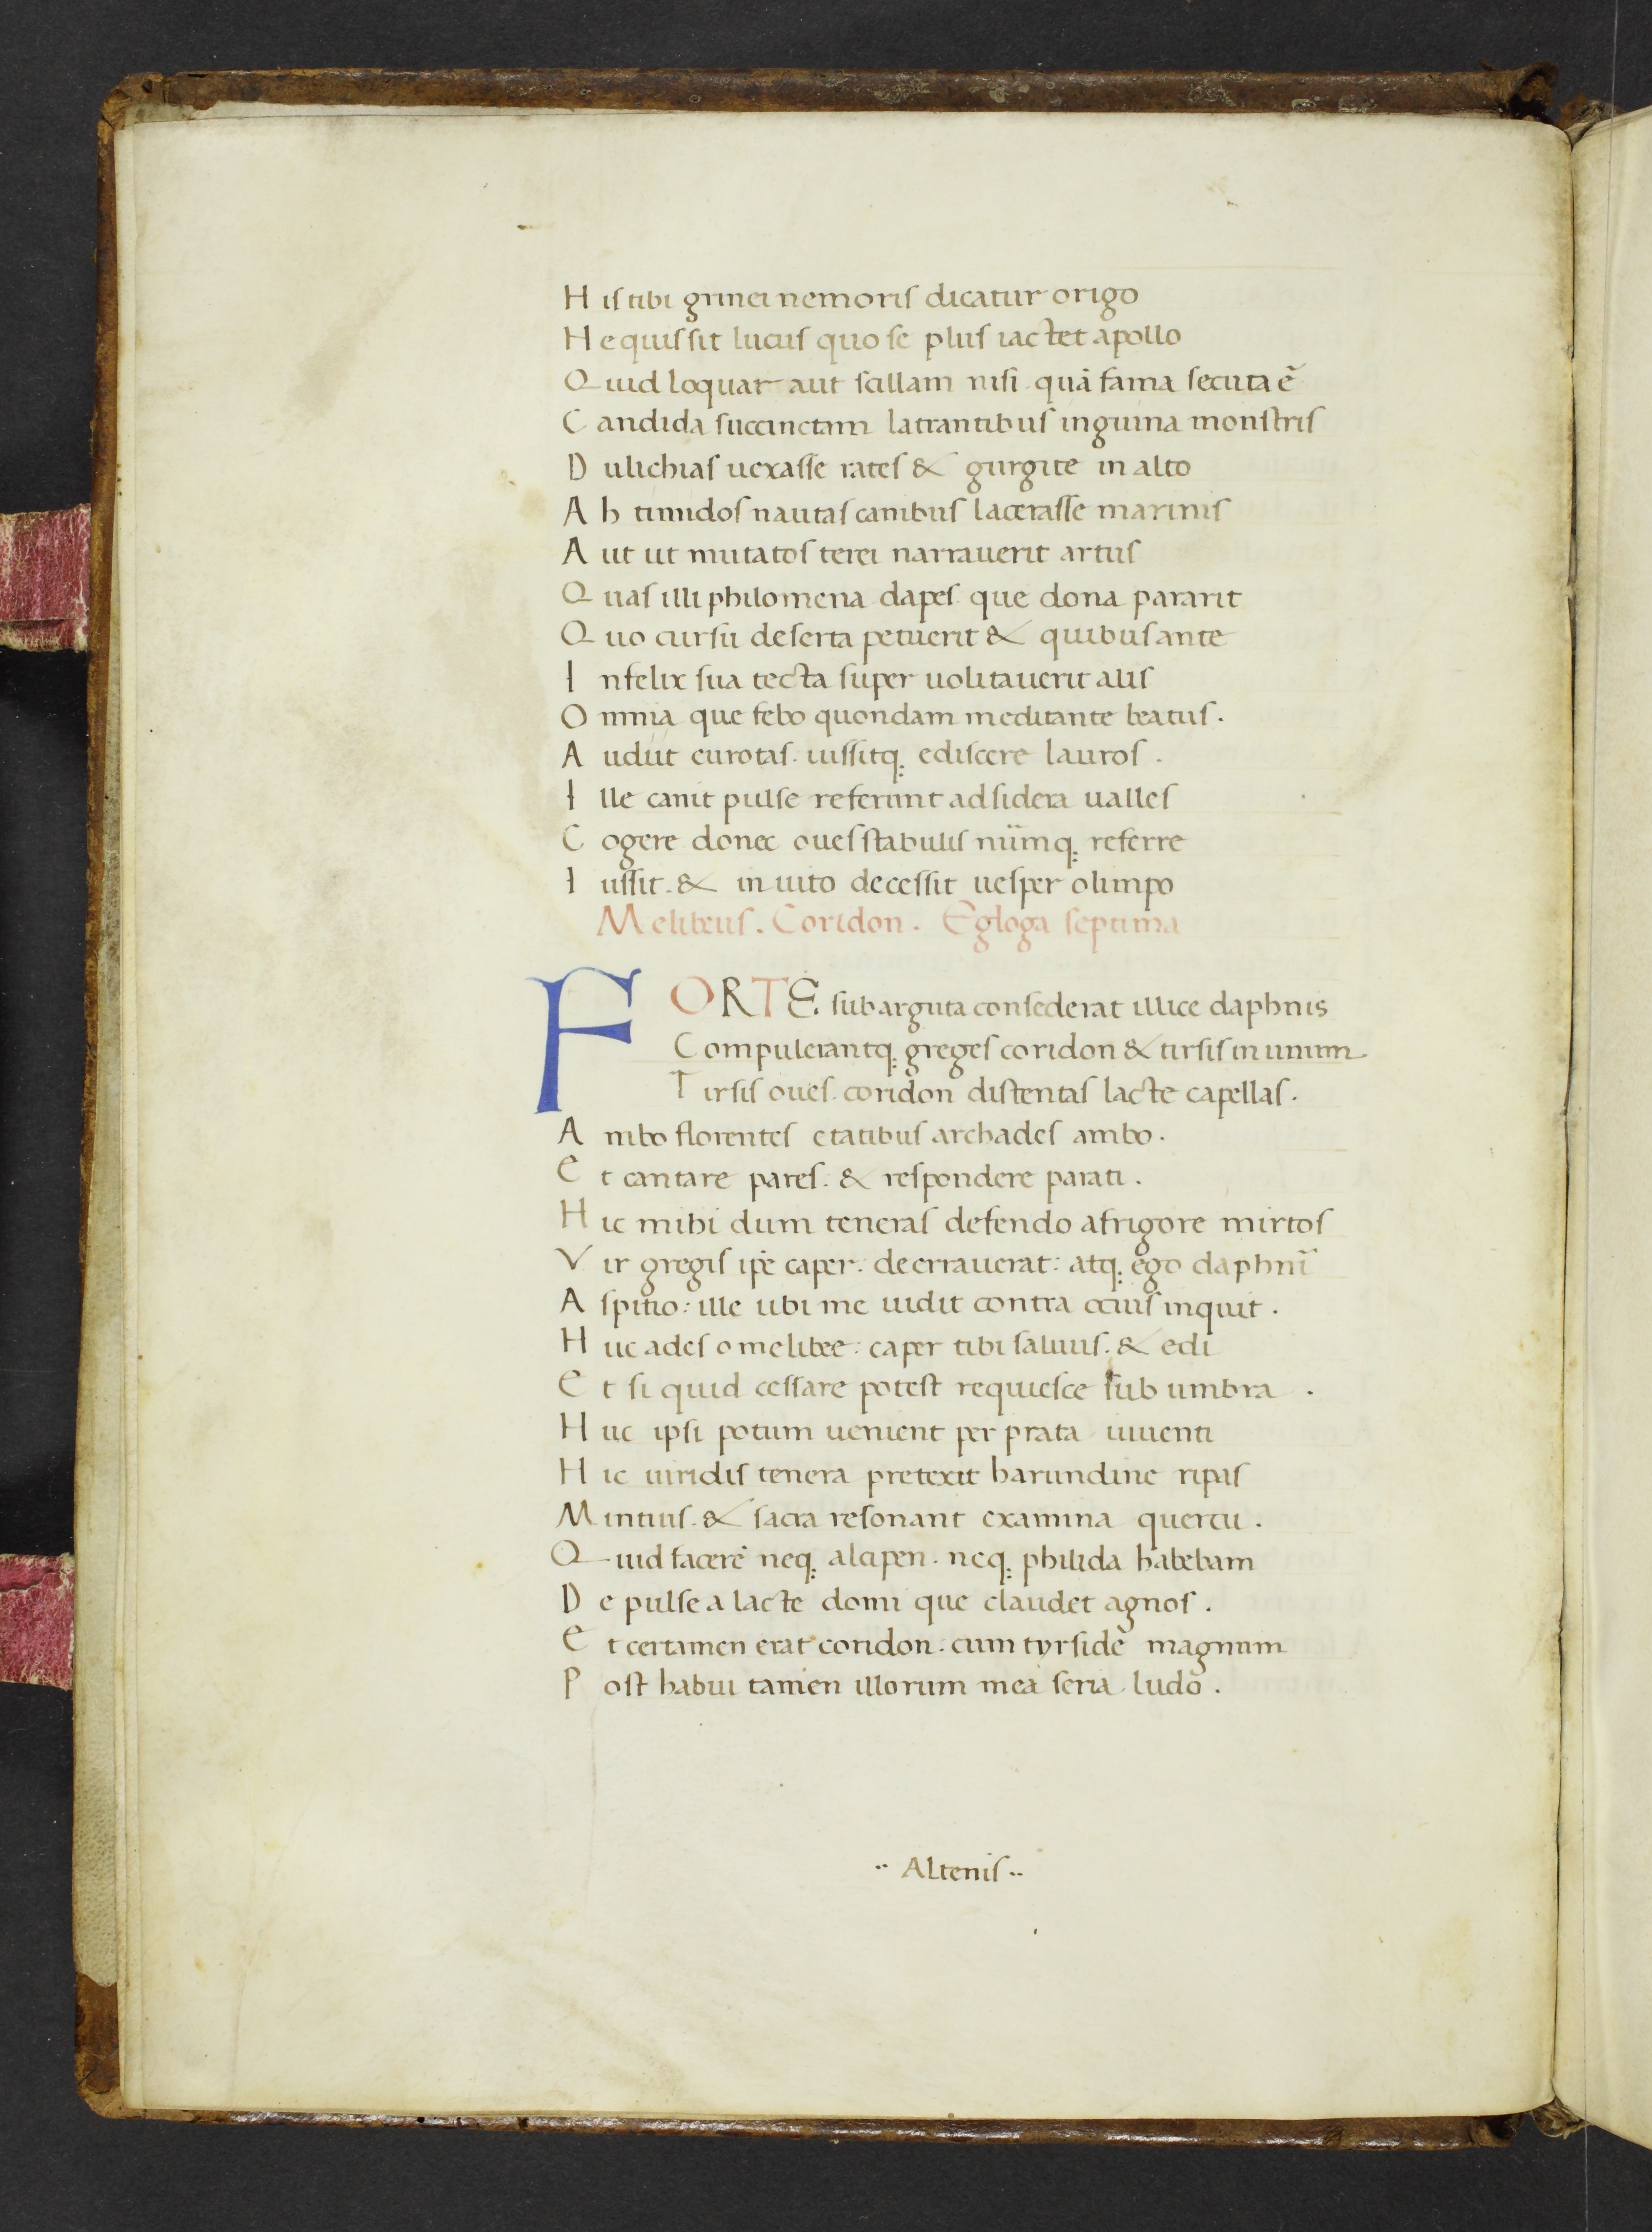 His tibi grinei nemoris dicatur origo
He quis sit lucus quo se plus iactet apollo
Quid loquar aut scillam nisi quā fama secuta ē
Candida succinctam latrantibus inguina monstris
Dulichias uexasse rates & gurgite in alto
Ah timidos nautas canibus lacerasse marinis
Aut ut mutatos terei narrauerit artus
Quas illi philomena dapes que dona pararit
Quo cursu deserta petiuerit & quibus ante
Infelix sua tecta super uolitauerit alis
Omnia que febo quondam meditante beatus.
Audiit eurotas. iussitq; ediscere lauros.
Ille canit pulse referunt ad sidera ualles
Cogere donec oues stabulis nūmq; referre
Iussit. & inuito decessit uesper olimpo
Melibeus. Coridon. Egloga septima
FORTE sub arguta consederat illice daphnis
Compulerantq; greges coridon & tirsis in unum
Tirsis oues. coridon distentas lacte capellas.
Ambo florentes etatibus archades ambo.
Et cantare pares. & respondere parati.
Hic mihi dum teneras defendo afrigore mirtos
Vir gregis ipē caper. deerrauerat: atq; ego daphnī
Aspitio: ille ubi me uidit contra ocius inquit.
Huc ades o melibee: caper tibi saluus. & edi
Et si quid cessare potest requiesce sub umbra.
Huc ipsi potum uenient per prata iuuenti
Hic uiridis tenera pretexit harundine ripas
Mintius. & sacra resonant examina quercu.
Quid facerē neq; alcipen. neq; philida habebam
De pulse a lacte domi que claudet agnos.
Et certamen erat coridon. cum tyrsidē magnum
Post habui tamen illorum mea seria ludō.
.. Altenis ..